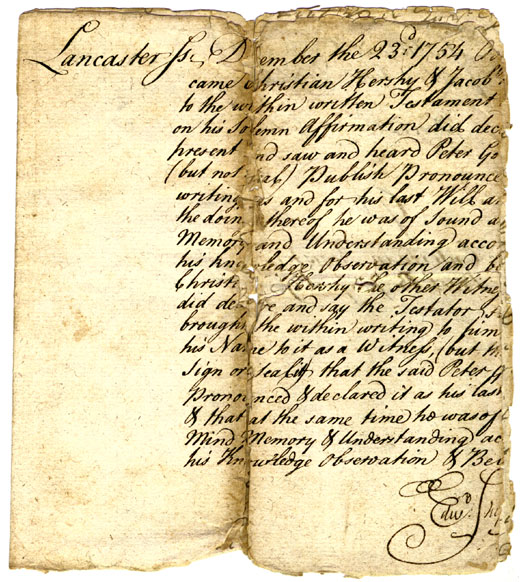 Lancaster ss. December the 23d. 1754
came Christian Hershy & Jacob
to the within written Testament
on his Solemn Affirmation did dec
present and saw and heard Peter Go
(but not seal) Publish Pronounce
writing as and for his last Will a
the doing thereof he was of Sound a
Memory and Understanding acco
his knowledge Observation and b
Christian Hershy the other Witne
did declare and say the Testator
brought the within writing to him
his Name to it as a Witness, (but
Sign or seal it) that the said Peter G
Pronounced & declared it as his last
& that at the same time he was of
Mind Memory & Understanding ac
his Knowledge Observation & Bel
Edwd. Sh